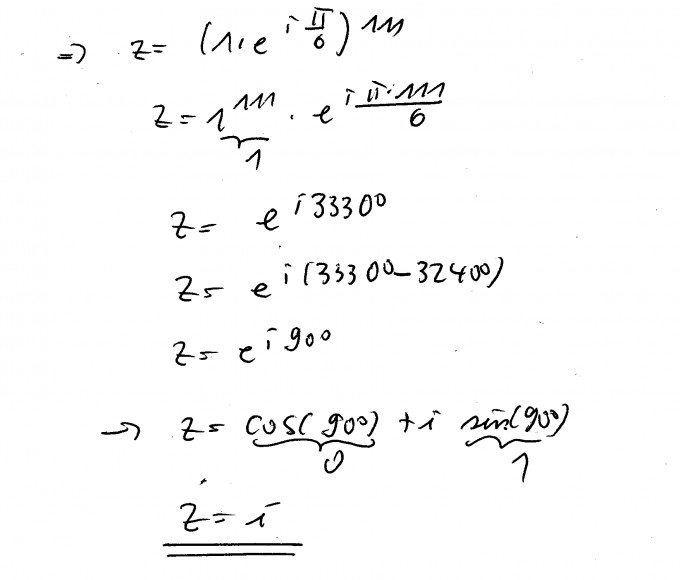 => z = (1·e^{i π/6})^{111}
z = 1^{111} · e^{i π·111/6}
1
z = e^{i 3330°}
z = e^{i (3330° - 3240°)}
z = e^{i 90°}
-> z = cos(90°) + i sin(90°)
0 1
z = i